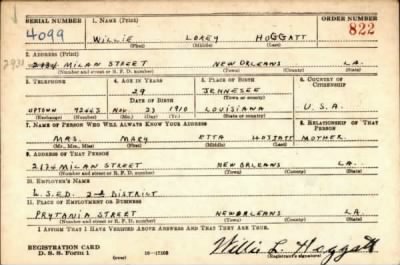 SERIAL NUMBER 1. NAME (Print) ORDER NUMBER
4099 WILLIE LOREY HOGGATT 822
(First) (Middle) (Last)
2. ADDRESS (Print)
2134 MILAN STREET NEW ORLEANS LA.
(Number and street or R. F. D. number) (Town) (County) (State)
3. TELEPHONE 4. AGE IN YEARS 5. PLACE OF BIRTH 6. COUNTRY OF CITIZENSHIP
29 JENNESEE
DATE OF BIRTH (Town or county)
UPTOWN NOV 23 1910 LOUISIANA U.S.A.
(Exchange) (Number) (Mo.) (Day) (Yr.) (State or country)
7. NAME OF PERSON WHO WILL ALWAYS KNOW YOUR ADDRESS 8. RELATIONSHIP OF THAT PERSON
MRS. MARY ETTA HOGGATT MOTHER
(Mr., Mrs., Miss) (First) (Middle) (Last)
9. ADDRESS OF THAT PERSON
2134 MILAN STREET NEW ORLEANS LA.
(Number and street or R. F. D. number) (Town) (County) (State)
10. EMPLOYER'S NAME
L.S.ED. 2nd DISTRICT
11. PLACE OF EMPLOYMENT OR BUSINESS
PRYTANIA STREET NEWORLEANS LA
(Number and street or R. F. D. number) (Town) (County) (State)
I AFFIRM THAT I HAVE VERIFIED ABOVE ANSWERS AND THAT THEY ARE TRUE.
REGISTRATION CARD
D. S. S. Form 1 (over) 16—17105 Willie L. Hoggatt
(Registrant's signature)